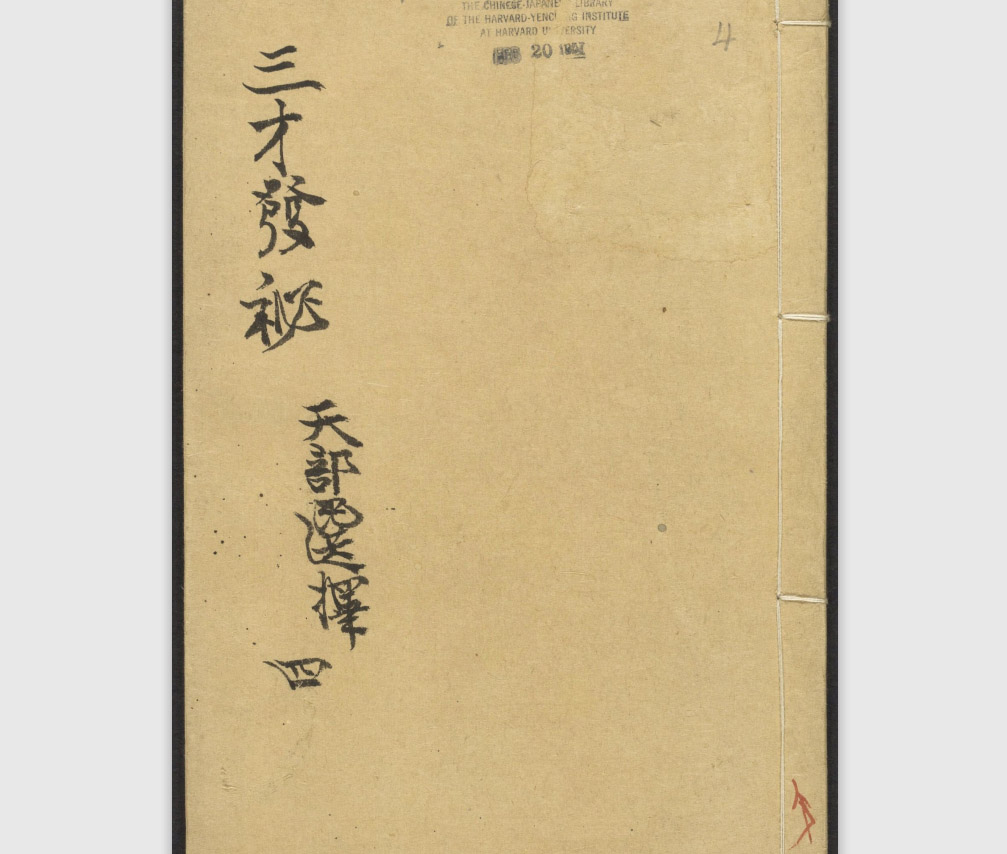 THE CHINESE-JAPANESE LIBRARY
OF THE HARVARD-YENCHING INSTITUTE
AT HARVARD UNIVERSITY
20
4
三才發祕
天部選擇
四